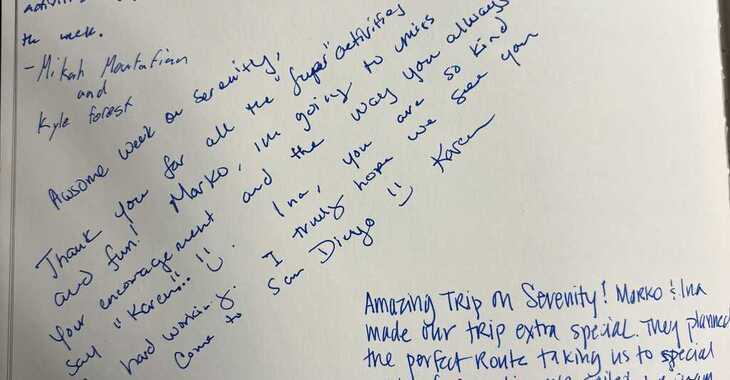 the week.
- Mikah
and
Kyle Forest
Awsome week on serenity,
Thank you for all the "super" activities
and fun! Marko, im going to miss
your encouragement and the way you always
say "Karen.." :) Ina, you are so kind
hard working. I truly hope we see you
Come to San Diego :) Karen
Amazing Trip on Serenity! Marko & Ina
made our trip extra special. They planned
the perfect Route taking us to special